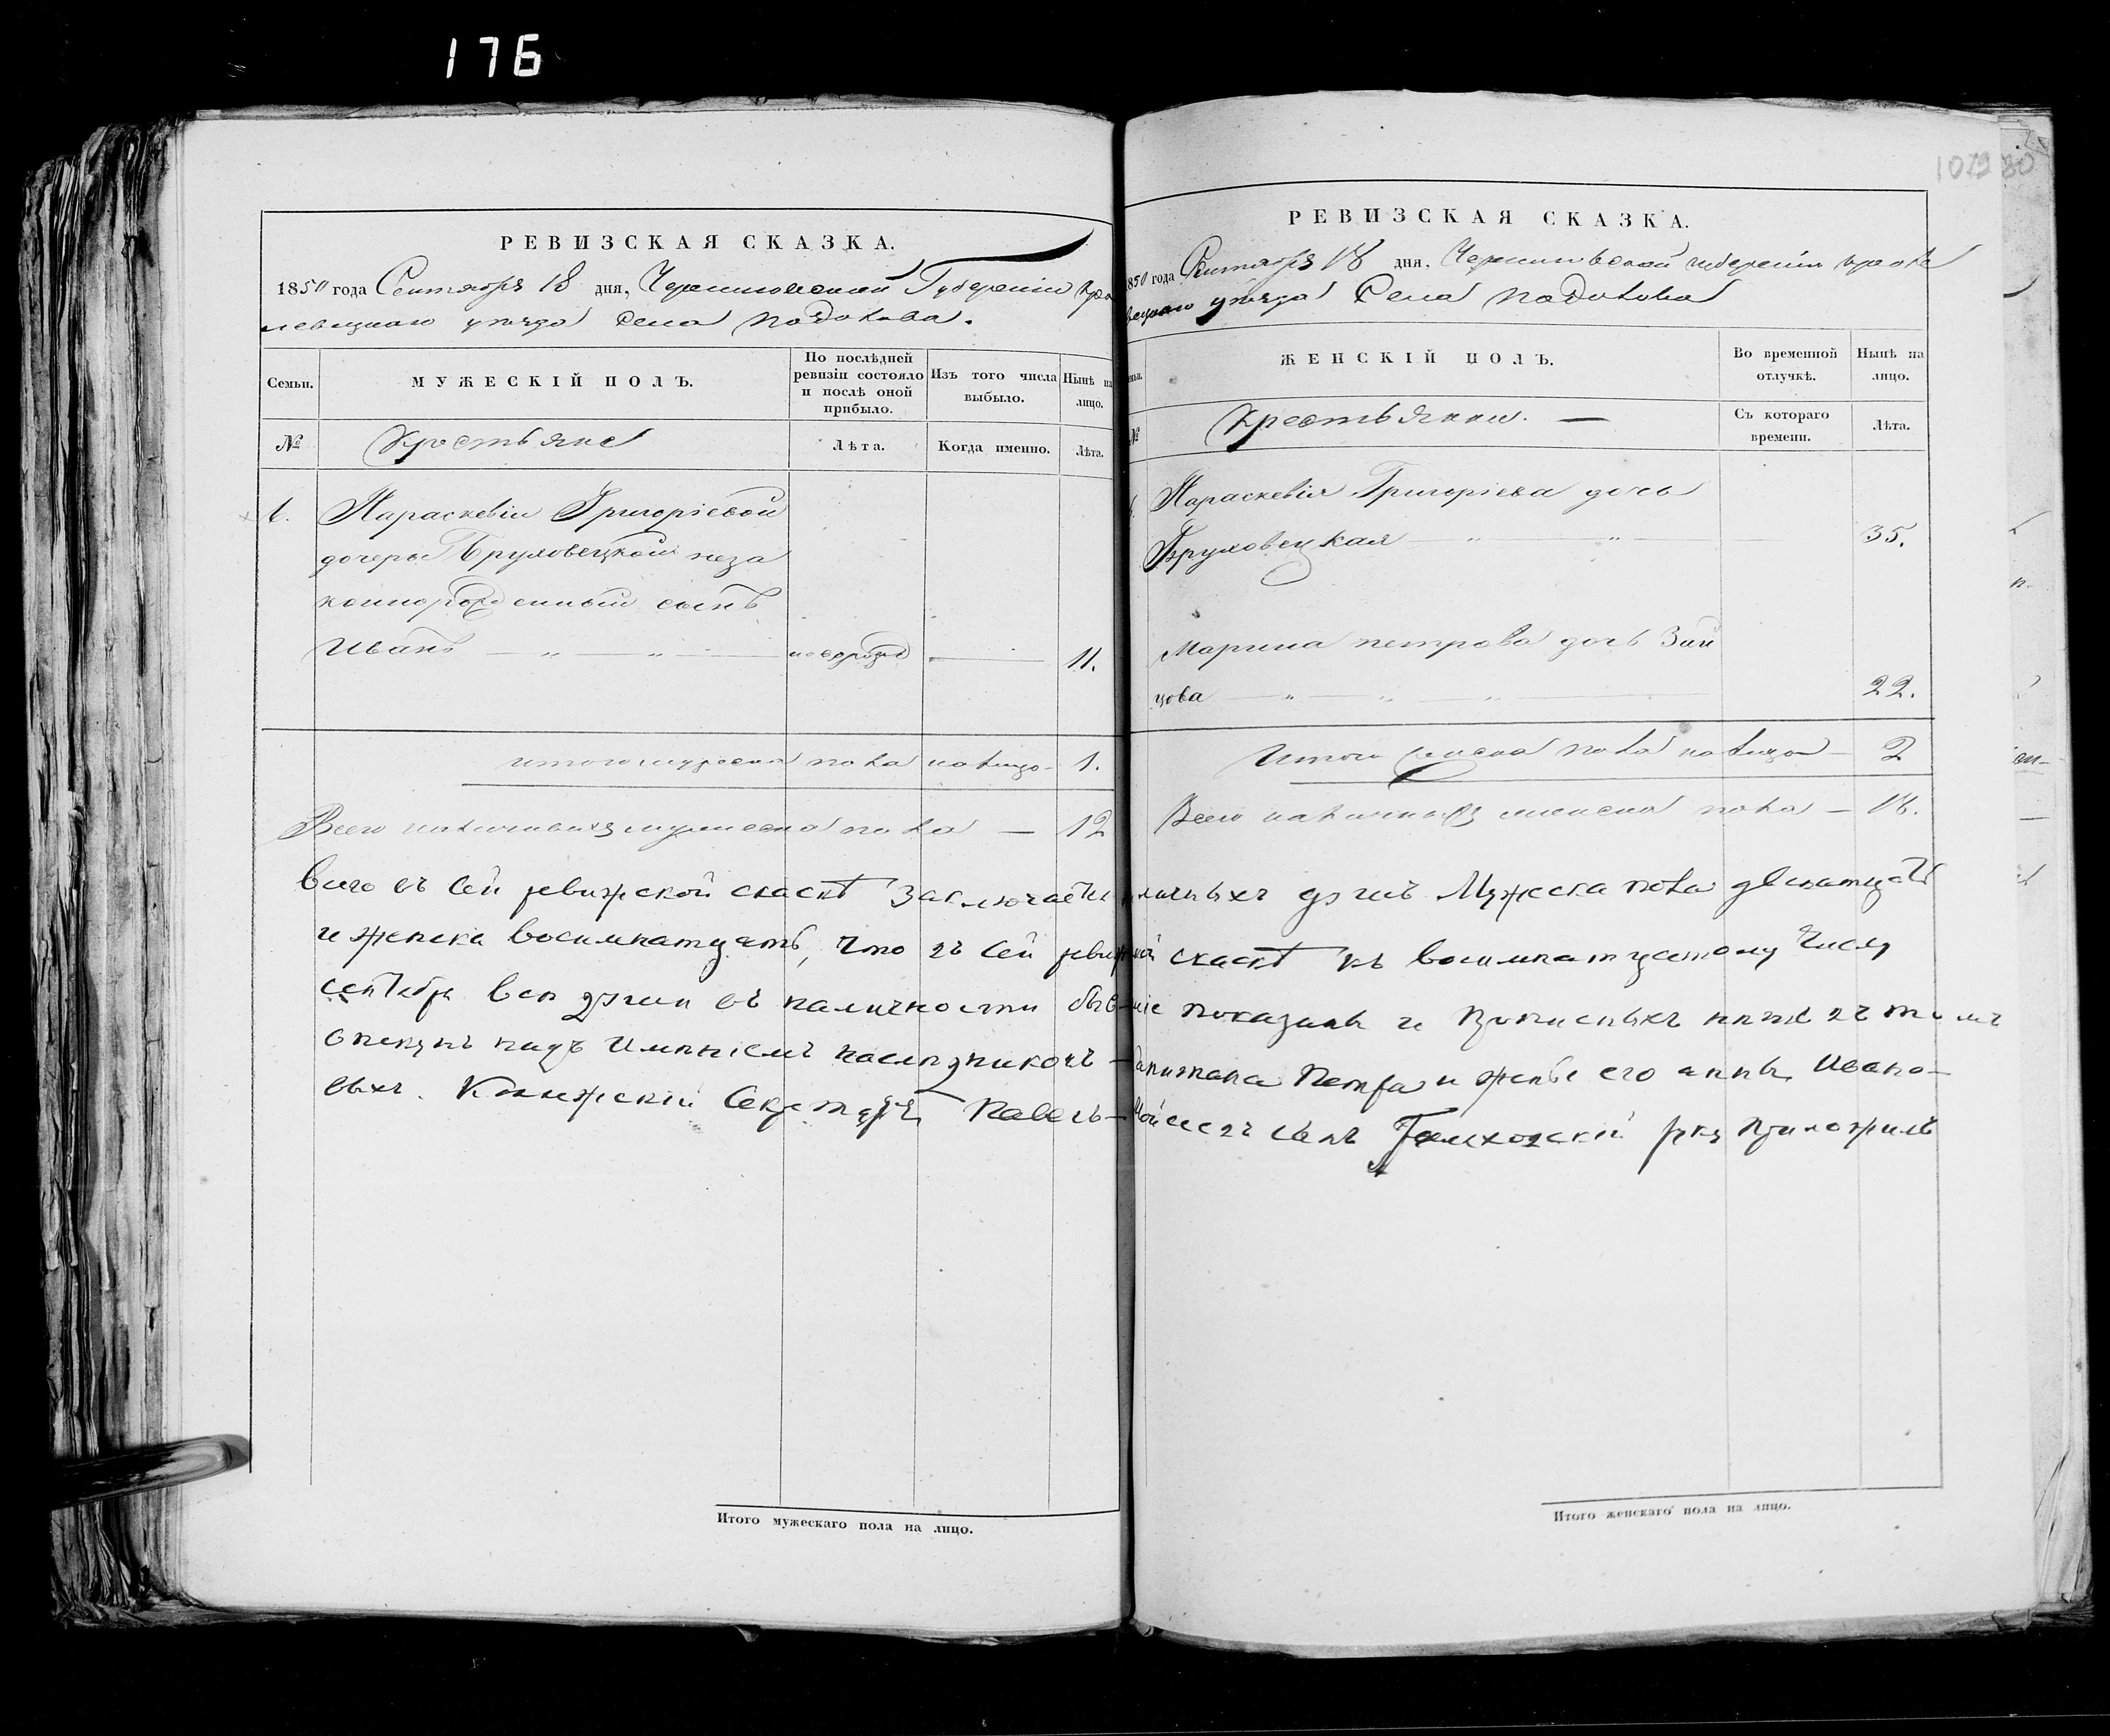 176
1079 80
РЕВИЗСКАЯ СКАЗКА.
1850 года Сентября 18 дня, Черниговской Губерніи Кро
левецкаго уезда Села Подолова.
Семьи.
МУЖЕСКІЙ ПОЛЪ.
По послѣдней ревизіи состояло и послѣ оной прибыло.
Изъ того числа выбыло.
Нынѣ на лицо.
№
Крестьяне
Лѣта.
Когда именно.
Лѣта.
6. Параскевіи Григоріевой
дочери Бруховецкой неза
коннорожденный сынъ
Иванъ — „ — „ — новорожд — 11.
итого мужеска пола налицо — 1.
Всего наличныхъ мужеска пола — 12
РЕВИЗСКАЯ СКАЗКА.
1850 года Сентября 18 дня, Черниговской губерніи кроле
вецкаго уезда Села Подолова
ЖЕНСКІЙ ПОЛЪ.
Во временной отлучкѣ.
Нынѣ на лицо.
№
Крестьянки. —
Съ котораго времени.
Лѣта.
Параскевія Григоріева дочь
Бруховецкая — „ — „ — 35.
Марина петрова дочь Зай
цова — „ — „ — „ — 22.
Итого женска пола налицо — 2
Всего наличныхъ женска пола — 18.
Всего въ сей ревижской скаскѣ заключается наличныхъ душъ Мужеска пола двенатцать
и женска восимнатцать, что въ сей ревижской скаскѣ къ восимнатцетому числу
сентебря все души въ наличности бывшіе показаны и прописныхъ нѣтъ въ томъ
опекунъ надъ имѣніемъ наслѣдниковъ капитана Петра и жены его анны Ивано-
выхъ. Колежскій Секретарь Павелъ Мойсеевъ сынъ руку приложилъ
Итого мужескаго пола на лицо.
Итого женскаго пола на лицо.